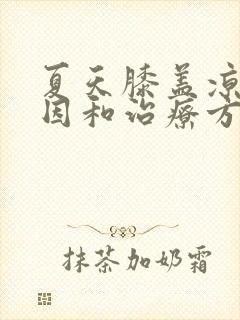 夏天膝盖凉
因和治疗方
抹茶加奶霜